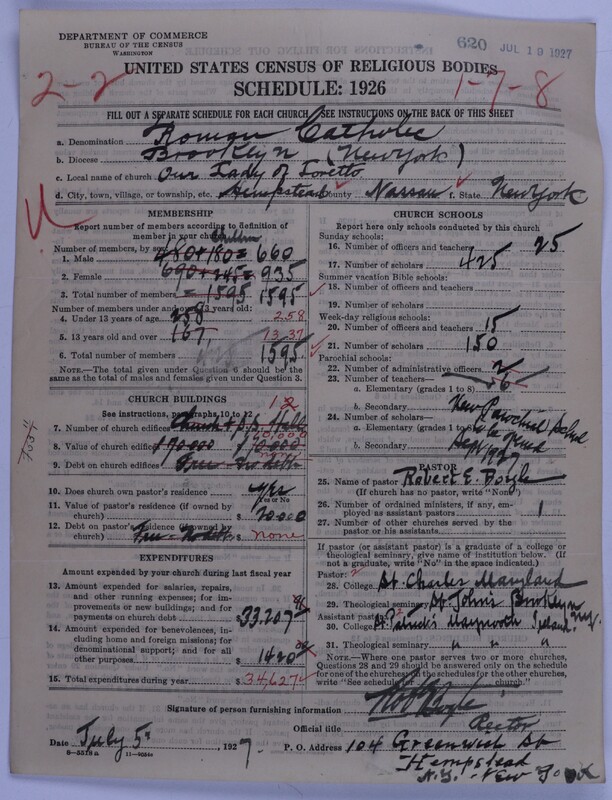 DEPARTMENT OF COMMERCE
BUREAU OF THE CENSUS
WASHINGTON
620 JUL 19 1927
UNITED STATES CENSUS OF RELIGIOUS BODIES
SCHEDULE: 1926
2-2
1-7-8
FILL OUT A SEPARATE SCHEDULE FOR EACH CHURCH SEE INSTRUCTIONS ON THE BACK OF THIS SHEET
a. Denomination Roman Catholic
b. Diocese Brooklyn (New York)
c. Local name of church Our Lady of Loretto
d. City, town, village, or township, etc. Hempstead County Nassau f. State New York
MEMBERSHIP
Report number of members according to definition of
member in your church
Children
Number of members, by sex:
1. Male 480+180= 660
2. Female 690+245= 935
3. Total number of members = 1595 1595
Number of members under and over 13 years old:
4. Under 13 years of age 258 258
5. 13 years old and over 1337
6. Total number of members 1595
NOTE.—The total given under Question 6 should be the
same as the total of males and females given under Question 3.
CHURCH BUILDINGS
See instructions, paragraphs 10 to 12
7. Number of church edifices Church & S.S. Hall
8. Value of church edifices
9. Debt on church edifices Free no debt
10. Does church own pastor's residence yes
Yes or No
11. Value of pastor's residence (if owned by
church) $ 20000
12. Debt on pastor's residence (if owned by
church) Free no debt none
EXPENDITURES
Amount expended by your church during last fiscal year
13. Amount expended for salaries, repairs,
and other running expenses; for im-
provements or new buildings; and for
payments on church debt $ 33.207
14. Amount expended for benevolences,
including home and foreign missions; for
denominational support; and for all
other purposes $ 1420
15. Total expenditures during year $ 34,627
CHURCH SCHOOLS
Report here only schools conducted by this church
Sunday schools:
16. Number of officers and teachers 25
17. Number of scholars 425
Summer vacation Bible schools:
18. Number of officers and teachers
19. Number of scholars
Week-day religious schools:
20. Number of officers and teachers 15
21. Number of scholars 150
Parochial schools:
22. Number of administrative officers 2
23. Number of teachers—
a. Elementary (grades 1 to 8) 6
b. Secondary New Parochial School
24. Number of scholars—
a. Elementary (grades 1 to 8)
b. Secondary Sept 1927
PASTOR
25. Name of pastor Robert E. Boyle
(If church has no pastor, write "None")
26. Number of ordained ministers, if any, em-
ployed as assistant pastors 1
27. Number of other churches served by the
pastor or his assistants
If pastor (or assistant pastor) is a graduate of a college or
theological seminary, give name of institution below. (If
not a graduate, write "No" in the space indicated.)
Pastor:
28. College St. Charles Maryland
29. Theological seminary St. John's Brooklyn N.Y.
Assistant pastor:
30. College St Patrick's Maynooth Ireland.
31. Theological seminary " " "
NOTE.—Where one pastor serves two or more churches,
Questions 28 and 29 should be answered only on the schedule
for one of the churches. On the schedules for the other churches,
write "See schedule for church."
Signature of person furnishing information Boyle
Official title Rector
Date July 5th, 1927.
P. O. Address 104 Greenwich St
Hempstead
N.Y. - New York